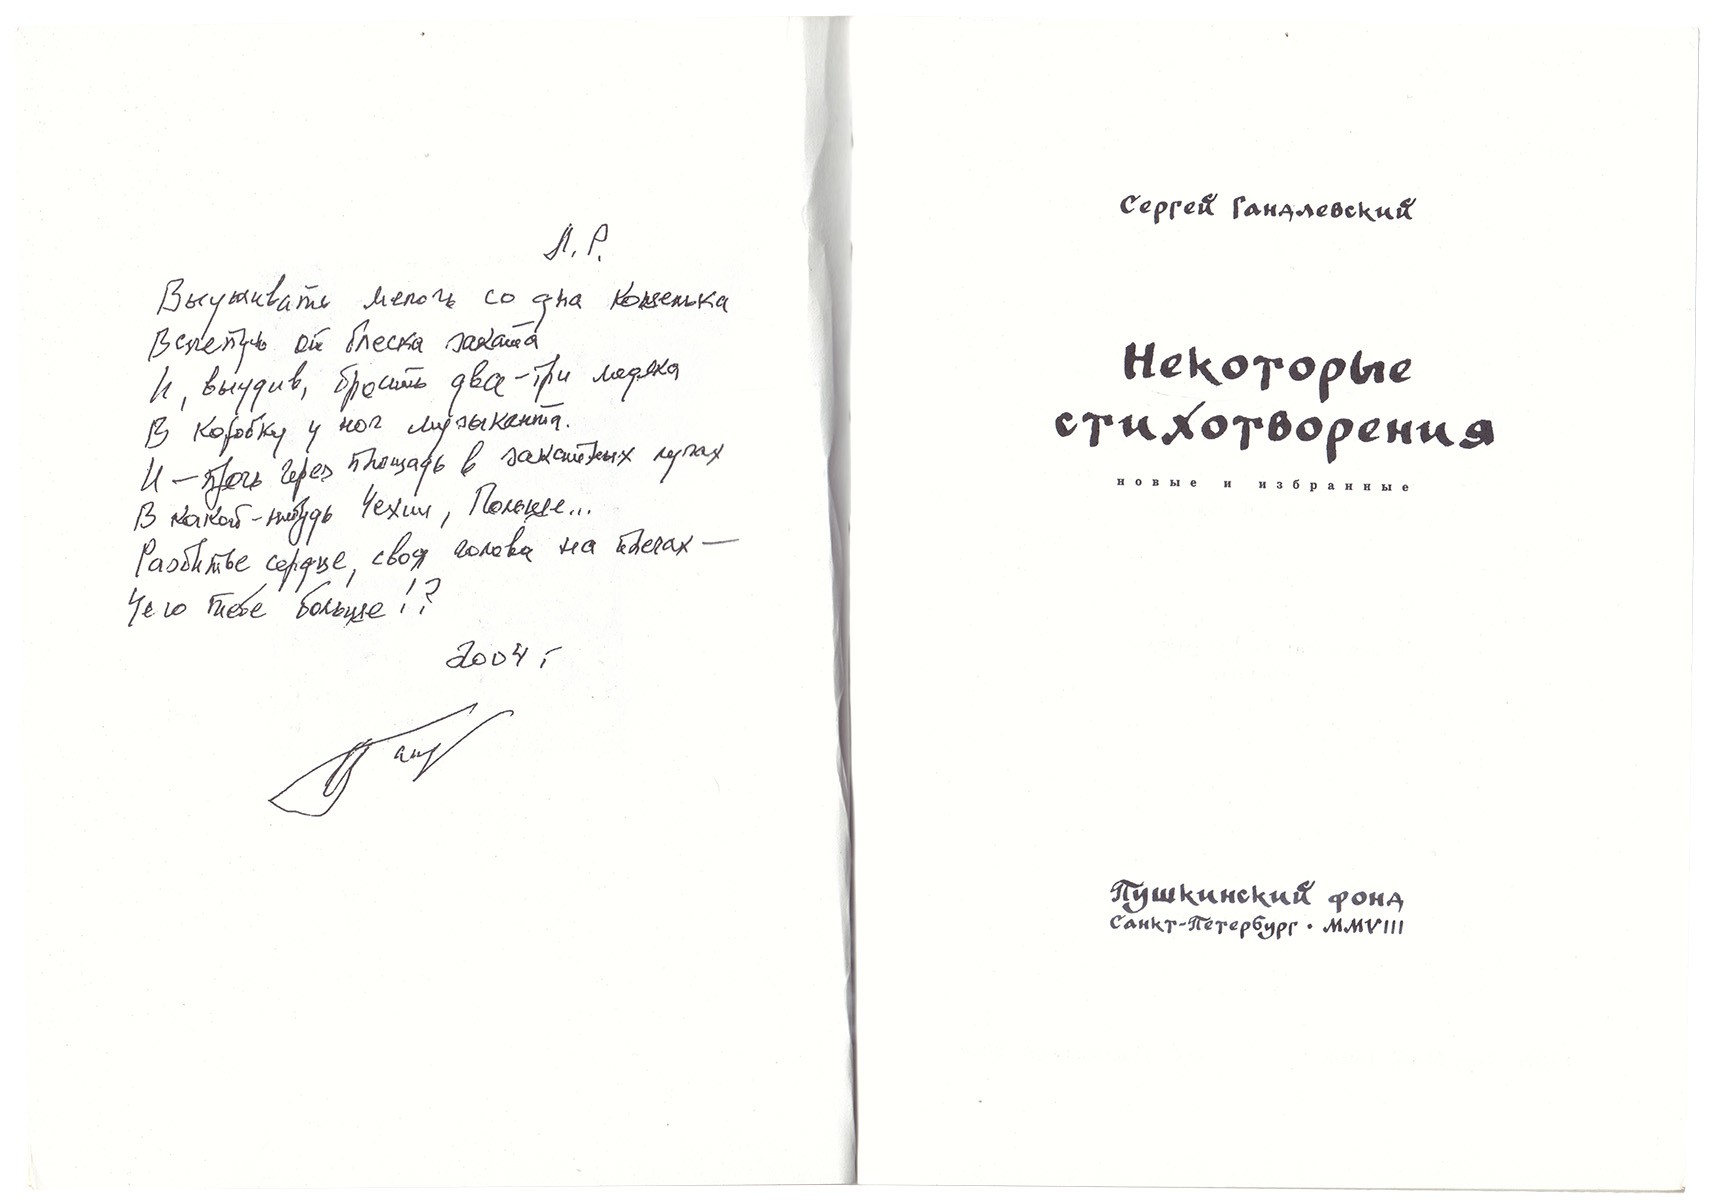 Л. Р.
Выуживать мелочь со дна кошелька
Вслепую от блеска заката
И, выудив, бросить два-три медяка
В коробку у ног музыканта.
И — прочь через площадь в закатных лучах
В какой-нибудь Чехии, Польше...
Разбитое сердце, своя голова на плечах —
Чего тебе больше!?
2004 г
Сергей Гандлевский
Некоторые
стихотворения
новые и избранные
Пушкинский фонд
Санкт-Петербург · MMVIII